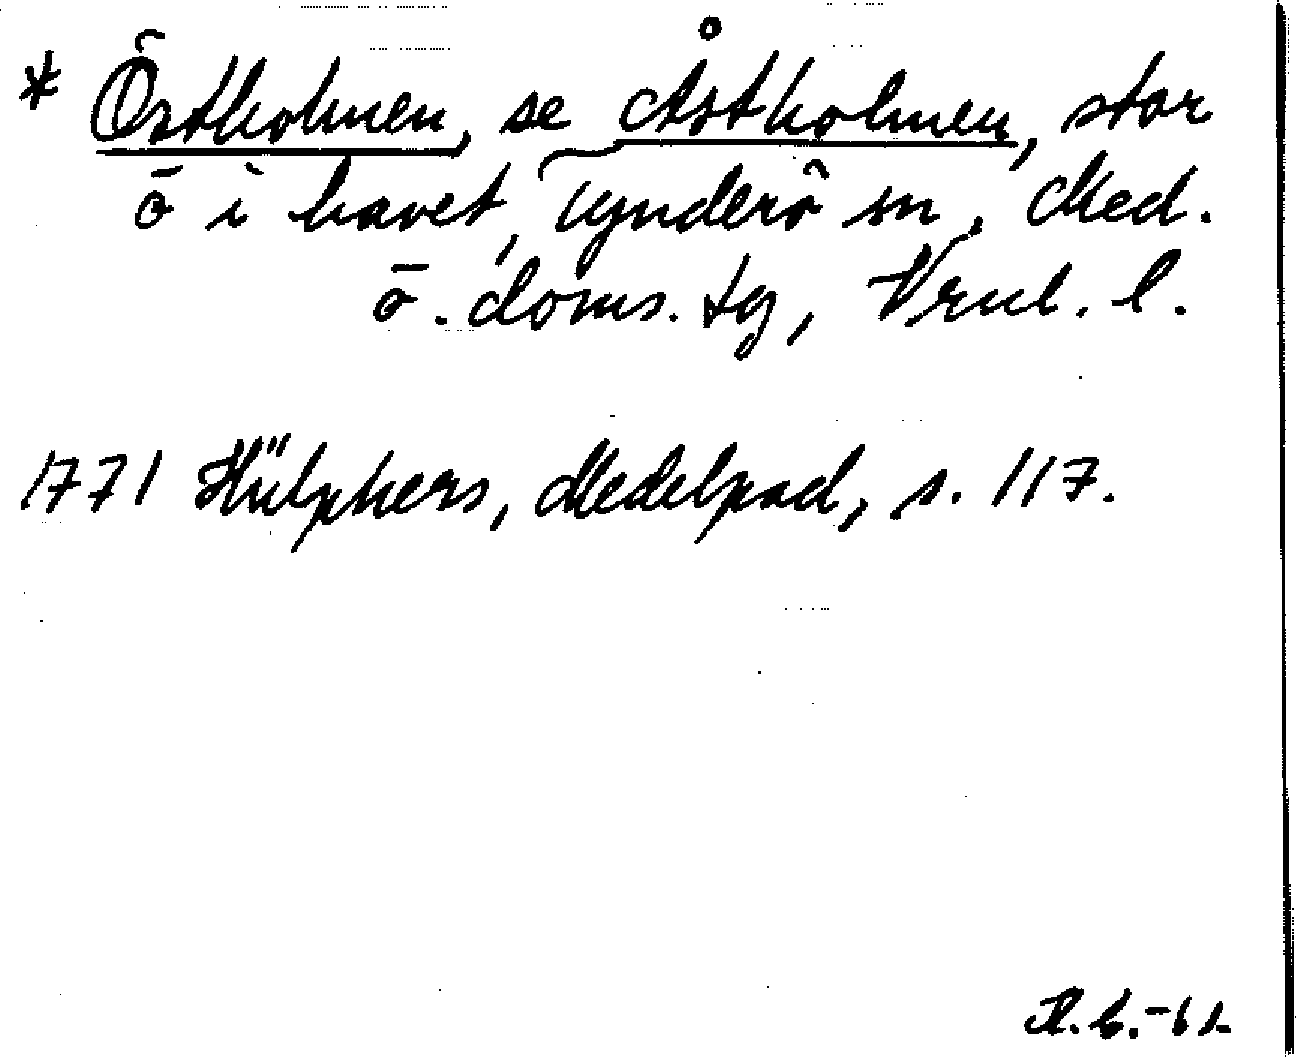 * Östholmen, se Åstholmen, stor
ö i havet, Tynderö sn, Med.
ö. doms. tg, Vrnl. l.
1771 Hülphers, Medelpad, s. 117.